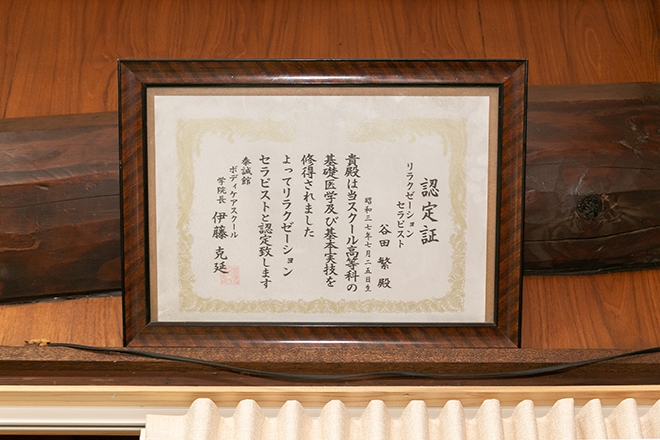 認定証
リラクゼーション
セラピスト
谷田繁殿
昭和三七年七月二五日生
貴殿は当スクール高等科の
基礎医学及び基本実技を
修得されました
よってリラクゼーション
セラピストと認定致します
泰誠館
ボディケアスクール
学院長 伊藤克延